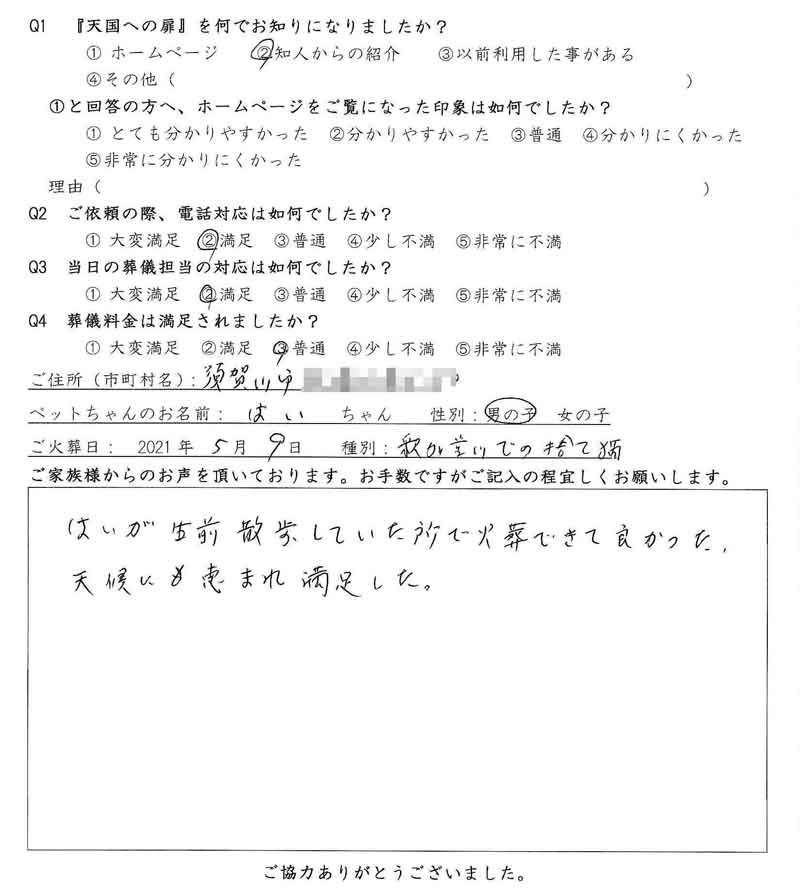 Q1 『天国への扉』を何でお知りになりましたか？
① ホームページ ②知人からの紹介 ③以前利用した事がある
④その他（ ）
①と回答の方へ、ホームページをご覧になった印象は如何でしたか？
① とても分かりやすかった ②分かりやすかった ③普通 ④分かりにくかった
⑤非常に分かりにくかった
理由（ ）
Q2 ご依頼の際、電話対応は如何でしたか？
① 大変満足 ②満足 ③普通 ④少し不満 ⑤非常に不満
Q3 当日の葬儀担当の対応は如何でしたか？
① 大変満足 ②満足 ③普通 ④少し不満 ⑤非常に不満
Q4 葬儀料金は満足されましたか？
① 大変満足 ②満足 ③普通 ④少し不満 ⑤非常に不満
ご住所（市町村名）：須賀川市
ペットちゃんのお名前： はい ちゃん 性別：男の子 女の子
ご火葬日： 2021年 5月 9日 種別： での捨て猫
ご家族様からのお声を頂いております。お手数ですがご記入の程宜しくお願いします。
はいが生前散歩していた所で火葬できて良かった。
天候にも恵まれ満足した。
ご協力ありがとうございました。